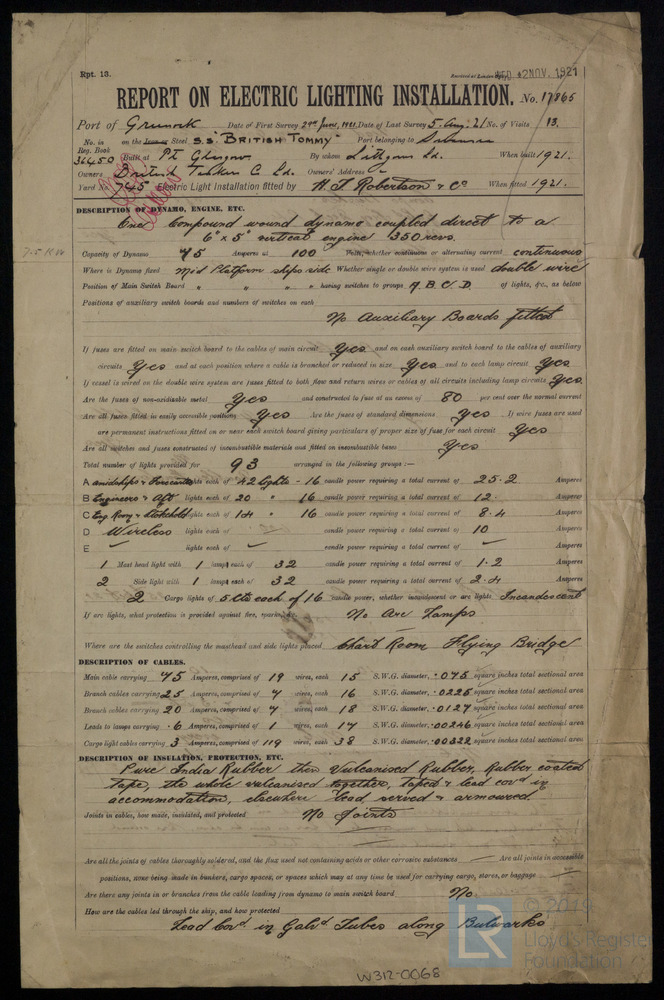 Rpt. 13.
2 NOV. 1921
REPORT ON ELECTRIC LIGHTING INSTALLATION. No. 17865
Port of Greenock Date of First Survey 29th June, 1921 Date of Last Survey 5. Aug. 21 No. of Visits 13.
No. in Reg. Book on the Iron or Steel S.S "BRITISH TOMMY" Port belonging to
36450 Built at Pt Glasgow By whom Lithgows Ld. When built 1921.
Owners British Tanker C. Ld. Owners' Address
Yard No. 745 Electric Light Installation fitted by W. F. Robertson & Co When fitted 1921.
DESCRIPTION OF DYNAMO, ENGINE, ETC.
One Compound wound dynamo coupled direct to a
6" x 5" vertical engine 350 revs.
7.5 KW
Capacity of Dynamo 75 Amperes at 100 Volts, whether continuous or alternating current continuous
Where is Dynamo fixed Mid Platform ships side Whether single or double wire system is used double wire
Position of Main Switch Board " " " " having switches to groups A. B. C. D. of lights, &c., as below
Positions of auxiliary switch boards and numbers of switches on each
No Auxiliary Boards fitted
If fuses are fitted on main switch board to the cables of main circuit Yes and on each auxiliary switch board to the cables of auxiliary
circuits Yes and at each position where a cable is branched or reduced in size Yes and to each lamp circuit Yes
If vessel is wired on the double wire system are fuses fitted to both flow and return wires or cables of all circuits including lamp circuits Yes
Are the fuses of non-oxidizable metal Yes and constructed to fuse at an excess of 80 per cent over the normal current
Are all fuses fitted in easily accessible positions Yes Are the fuses of standard dimensions Yes If wire fuses are used
are permanent instructions fitted on or near each switch board giving particulars of proper size of fuse for each circuit Yes
Are all switches and fuses constructed of incombustible materials and fitted on incombustible bases Yes
Total number of lights provided for 93 arranged in the following groups :—
A amidships & Forecastle lights each of 42 lights - 16 candle power requiring a total current of 25.2 Amperes
B Engineers & Aft lights each of 20 " 16 candle power requiring a total current of 12. Amperes
C Eng. Room & Stokehold lights each of 14 " 16 candle power requiring a total current of 8.4 Amperes
D Wireless lights each of candle power requiring a total current of 10 Amperes
E lights each of candle power requiring a total current of Amperes
1 Mast head light with 1 lamps each of 32 candle power requiring a total current of 1.2 Amperes
2 Side light with 1 lamps each of 32 candle power requiring a total current of 2.4 Amperes
2 Cargo lights of 5 lts each of 16 candle power, whether incandescent or arc lights Incandescent
If arc lights, what protection is provided against fire, sparks, &c. No Arc Lamps
Where are the switches controlling the masthead and side lights placed Chart Room Flying Bridge
DESCRIPTION OF CABLES.
Main cable carrying 75 Amperes, comprised of 19 wires, each 15 S.W.G. diameter, .075 square inches total sectional area
Branch cables carrying 25 Amperes, comprised of 7 wires, each 16 S.W.G. diameter, .0225 square inches total sectional area
Branch cables carrying 20 Amperes, comprised of 7 wires, each 18 S.W.G. diameter, .0127 square inches total sectional area
Leads to lamps carrying .6 Amperes, comprised of 1 wires, each 17 S.W.G. diameter, .00246 square inches total sectional area
Cargo light cables carrying 3 Amperes, comprised of 119 wires, each 38 S.W.G. diameter, .00322 square inches total sectional area
DESCRIPTION OF INSULATION, PROTECTION, ETC.
Pure India Rubber then Vulcanised Rubber, Rubber coated
tape, the whole vulcanised together, taped & lead covd in
accommodation, elsewhere lead served & armoured.
Joints in cables, how made, insulated, and protected No Joints
Are all the joints of cables thoroughly soldered, and the flux used not containing acids or other corrosive substances — Are all joints in accessible
positions, none being made in bunkers, cargo spaces, or spaces which may at any time be used for carrying cargo, stores, or baggage —
Are there any joints in or branches from the cable leading from dynamo to main switch board No.
How are the cables led through the ship, and how protected
Lead Covd in Galvd Tubes along Bulwarks
W312-0068
LR
© 2019
Lloyd's Register
Foundation